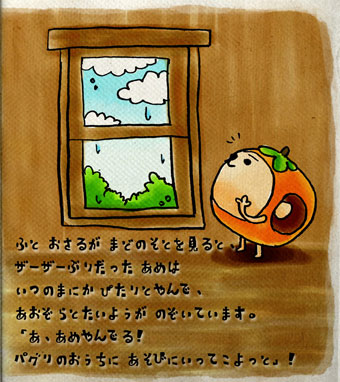 ふと おさるが まどのそとを見ると、
ザーザーぶりだった あめは
いつのまにか ぴたりとやんで、
あおぞらとたいようが のぞいています。
「あ、あめやんでる!
パグリのおうちに あそびにいってこよっと」!